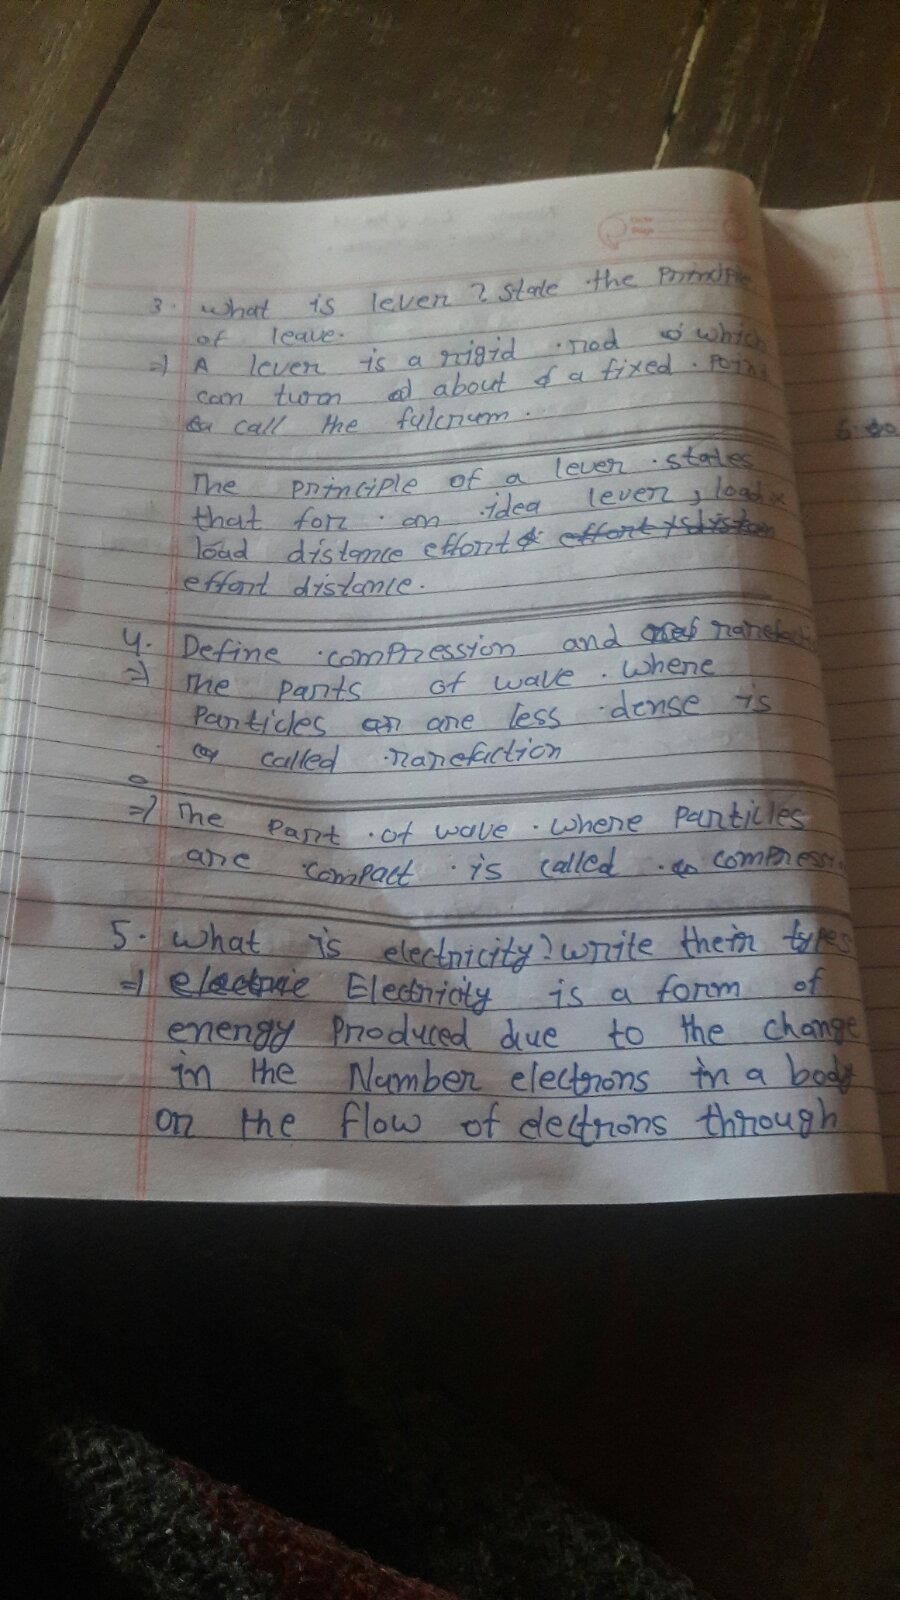 3. what is lever ? state the principle
of leave.
⇒ A lever is a rigid rod which
can turn about a fixed point
call the fulcrum.
The principle of a lever states
that for an idea lever, load ×
load distance effort
effort distance.
4. Define compression and rarefacti
⇒ The parts of wave where
particles are less dense is
called rarefaction
⇒ The part of wave where particles
are compact is called compressi
5. what is electricity? write their types
⇒ Electricity is a form of
energy produced due to the change
in the Number electrons in a body
or the flow of electrons through